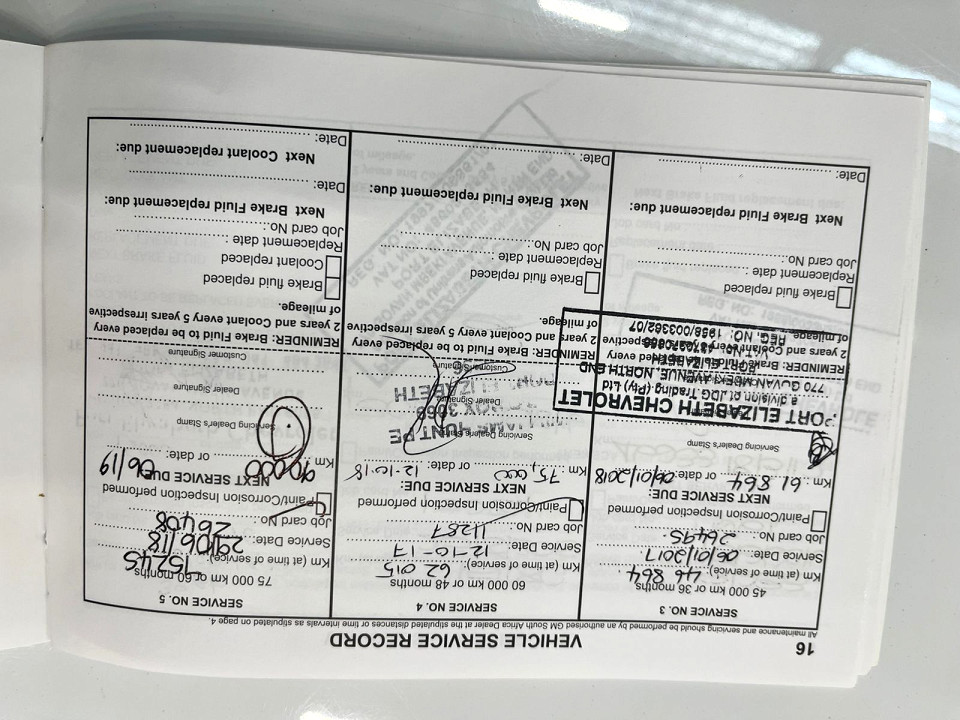 16
VEHICLE SERVICE RECORD
All maintenance and servicing should be performed by an authorised GM South Africa Dealer at the stipulated distances or time intervals as stipulated on page 4.
SERVICE NO. 3
45 000 km or 36 months
Km (at time of service): 46 864
Service Date: 06/01/2017
Job card No.: 26495
Paint/Corrosion Inspection performed
NEXT SERVICE DUE:
Km: 61 864 or date: 06/01/2018
Servicing Dealer's Stamp
PORT ELIZABETH CHEVROLET
a division of JDG Trading (Pty) Ltd
770 GOVAN MBEKI AVENUE, NORTH END
PORT ELIZABETH
REG. NO: 1958/003362/07
REMINDER: Brake Fluid to be replaced every
2 years and Coolant every 5 years irrespective
of mileage.
Brake fluid replaced
Replacement date
Job card No.:
Next Brake Fluid replacement due:
Date:
SERVICE NO. 4
60 000 km or 48 months
Km (at time of service): 62 015
Service Date: 12-10-17
Job card No.: 11287
Paint/Corrosion Inspection performed
NEXT SERVICE DUE:
Km: 75,000 or date: 12-10-18
Servicing Dealer's Stamp
WILLIAMS HUNT PE
BOX 3068
ELIZABETH
Dealer Signature
Customer Signature
REMINDER: Brake Fluid to be replaced every
2 years and Coolant every 5 years irrespective
of mileage.
Brake fluid replaced
Replacement date :
Job card No.:
Next Brake Fluid replacement due:
Date:
SERVICE NO. 5
75 000 km or 60 months
Km (at time of service): 75245
Service Date: 29/06/18
Job card No.: 26408
Paint/Corrosion Inspection performed
NEXT SERVICE DUE
Km: 90000 or date: 06/19
Servicing Dealer's Stamp
Dealer Signature
Customer Signature
REMINDER: Brake Fluid to be replaced every
2 years and Coolant every 5 years irrespective
of mileage.
Brake fluid replaced
Coolant replaced
Replacement date :
Job card No.:
Next Brake Fluid replacement due:
Date:
Next Coolant replacement due:
Date: